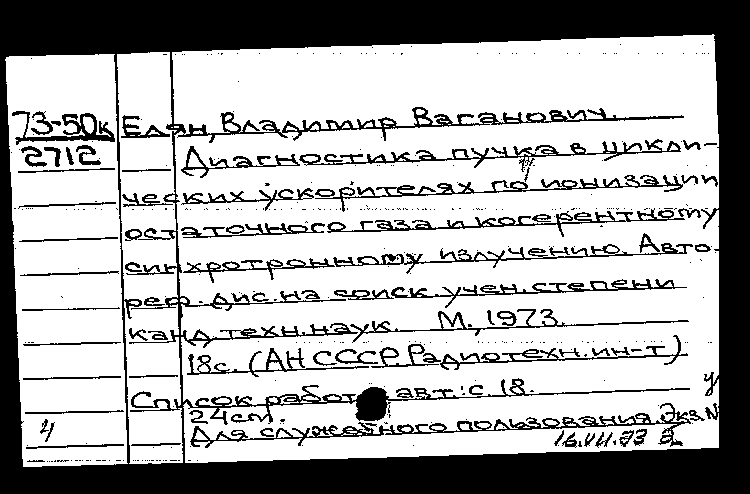 73-50к Елян, Владимир Ваганович.
2712 Диагностика пучка в цикли-
ческих ускорителях по ионизации
остаточного газа и когерентному
синхротронному излучению. Авто-
реф. дис. на соиск. учен. степени
канд. техн. наук. М., 1973.
18с. (АН СССР. Радиотехн. ин-т)
Список работ авт.: с. 18.
24см. у
Для служебного пользования. Экз. №
4 16.VII.73